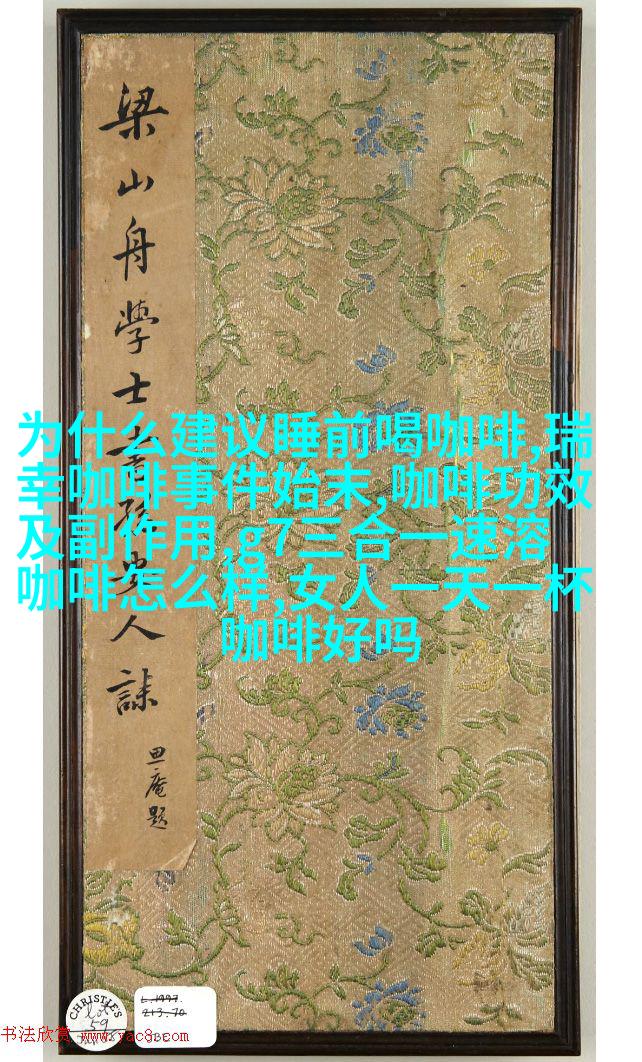 梁山舟學士書孫安人誄
思庵题
为什么建议睡前喝咖啡,瑞
幸咖啡事件始末,咖啡功效
及副作用,g7三合一速溶
咖啡怎么样,女人一天一杯
咖啡好吗
CHRISTIE'S
Lot
59
L.1997.
213.70
书法欣赏 www.yac8.com